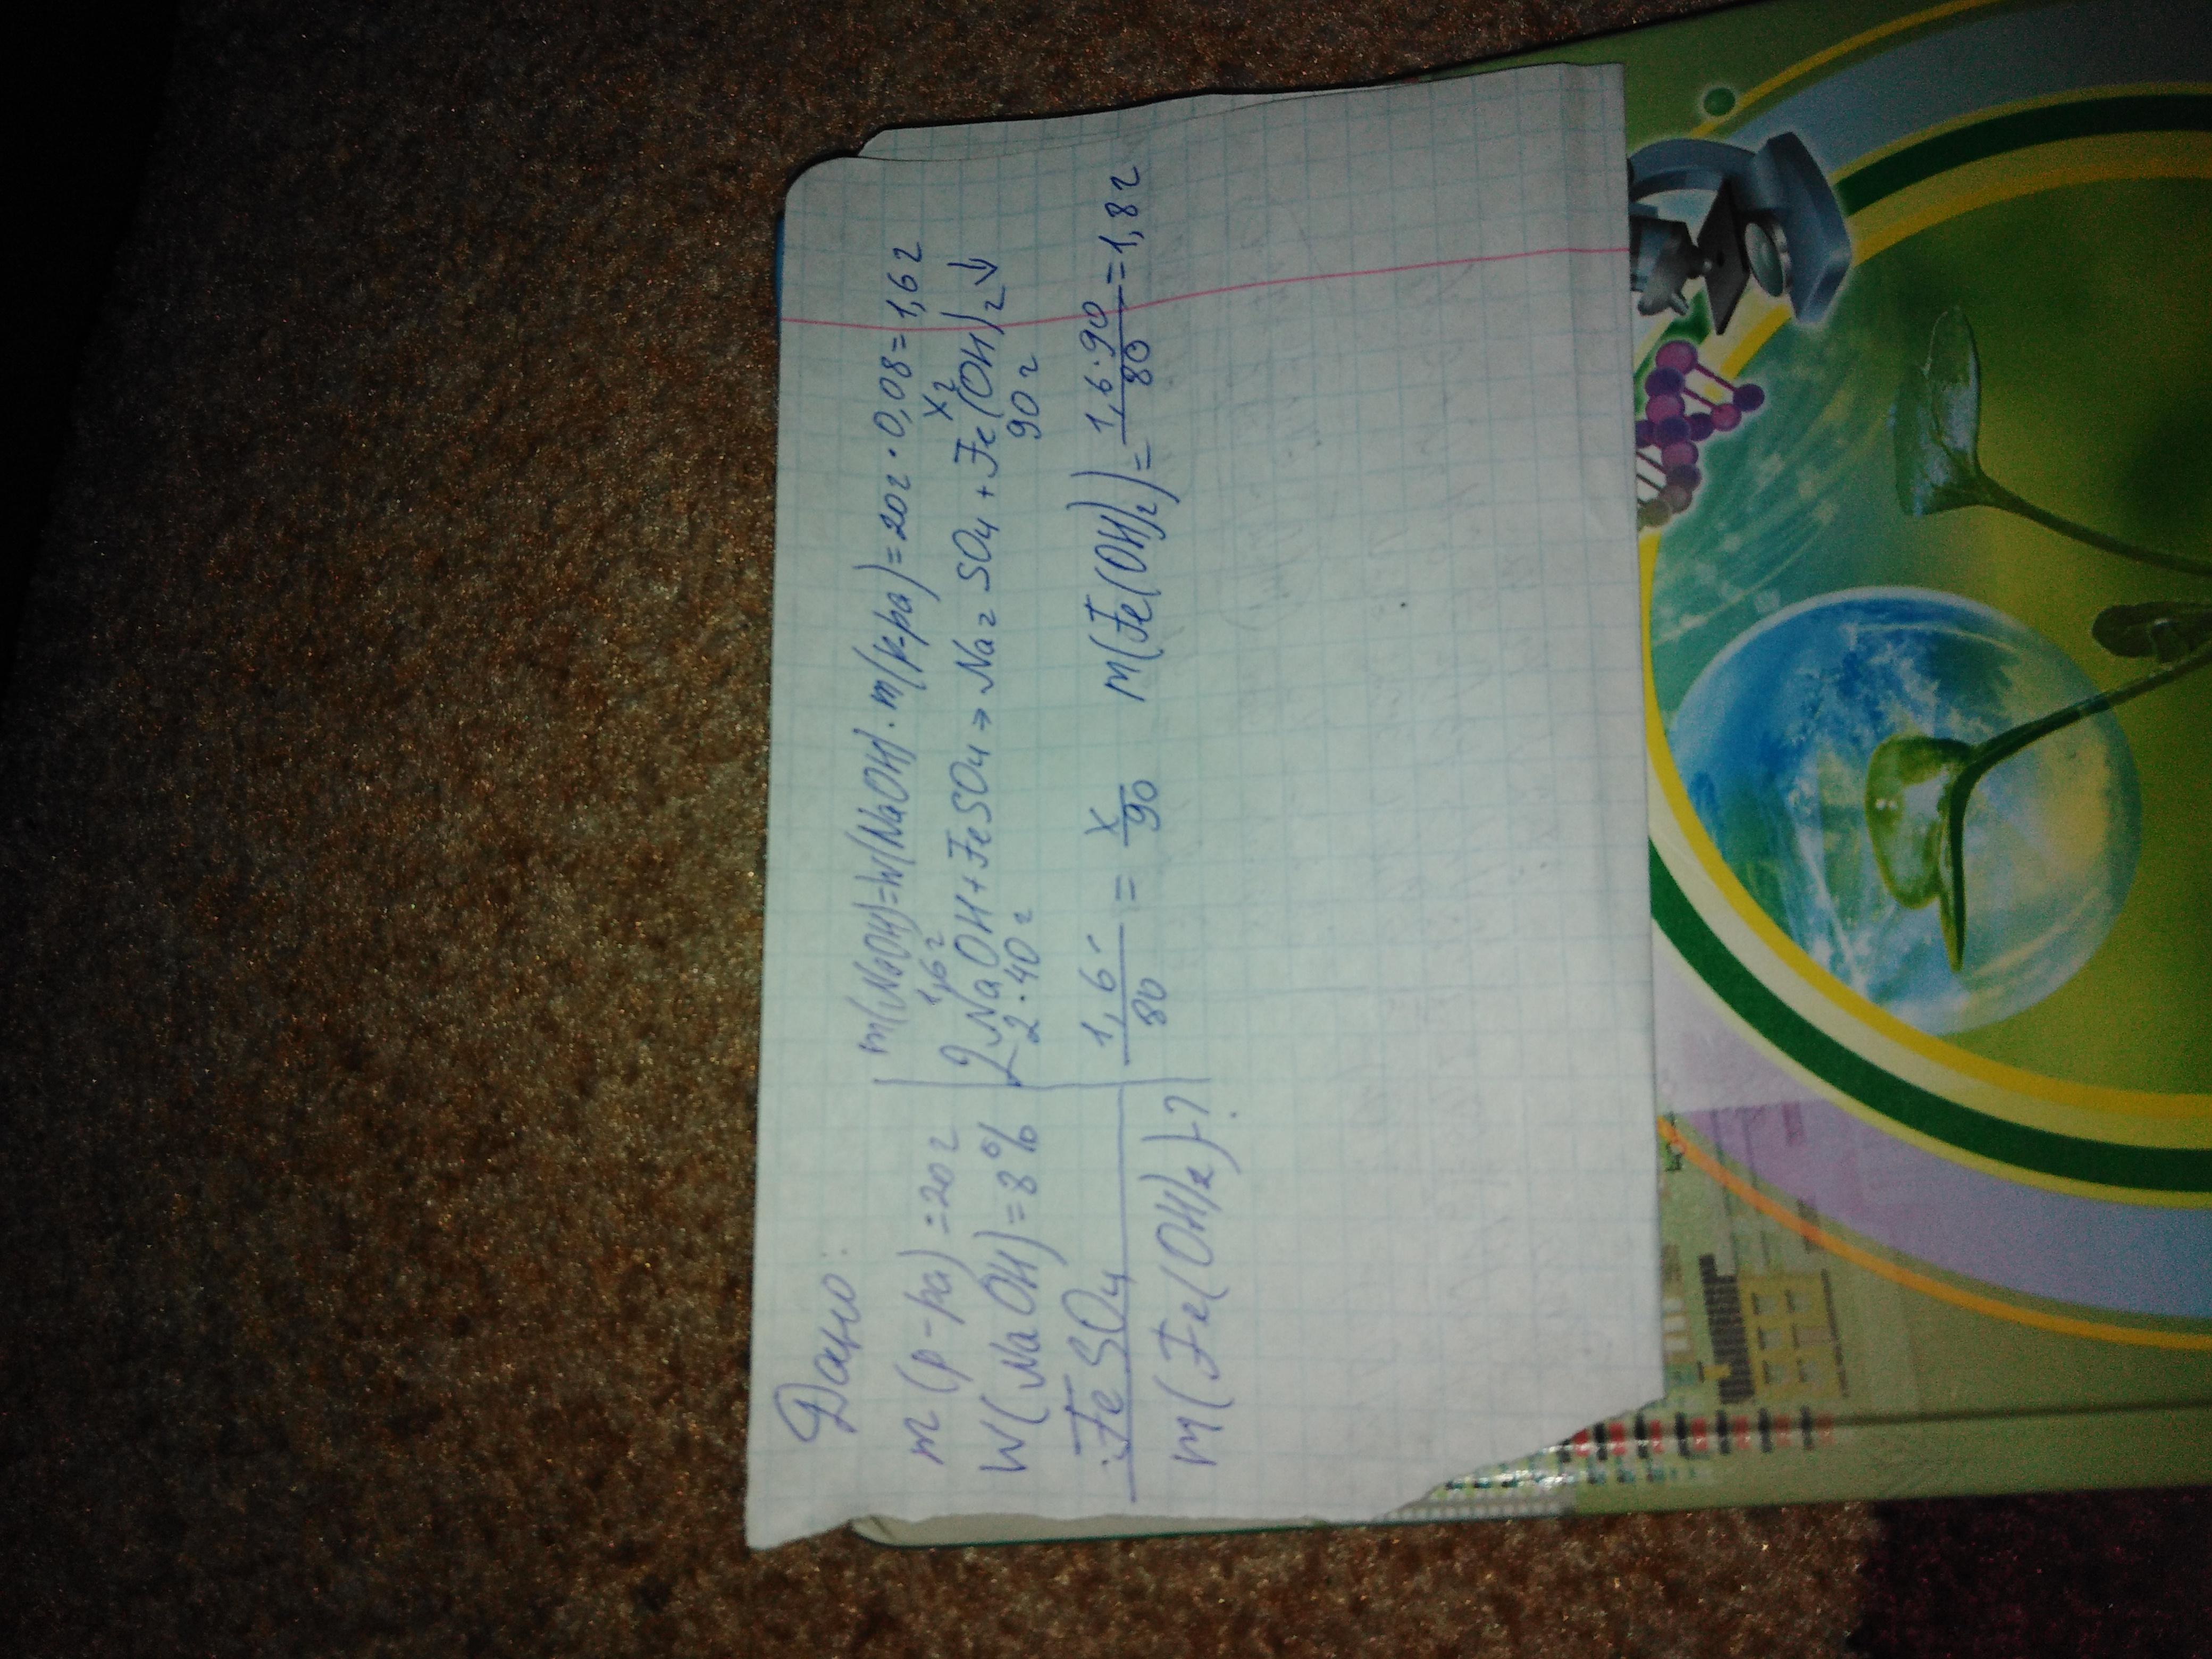 Дано:
m(р-ра)=20г
W(NaOH)=8%
FeSO4
m(Fe(OH)2)-?
m(NaOH)=W(NaOH)·m(р-ра)=20г·0,08=1,6г
1,6г xг
2NaOH+FeSO4→Na2SO4+Fe(OH)2↓
2·40г 90г
1,6/80 = x/90 m(Fe(OH)2)=1,6·90/80=1,8г